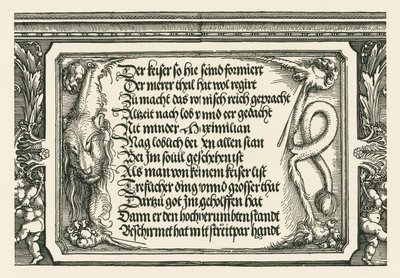 Der keiser so hie seind formiert
Der merer theil hat wol regirt
Zu macht das romisch reich gepracht
Alzeit nach lob vnnd er gedacht
Nit minder Maximilian
Mag loblich bey jn allen stan
Bei Im souil geschehen ist
Als man von keinem keiser list
Erstlicher ding vnnd grosser that
Dartzu got Jm geholffen hat
Dann er den hochverumbten standt
Beschirmet hat mit streitpar handt